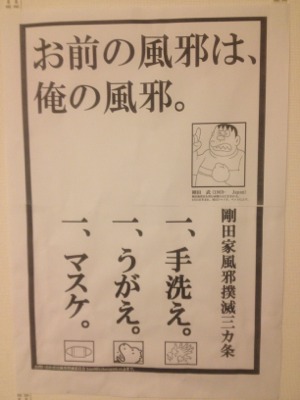 お前の風邪は、
俺の風邪。
剛田 武
Japan)
剛田家風邪撲滅三カ条
一、手洗え。
一、うがえ。
一、マスケ。